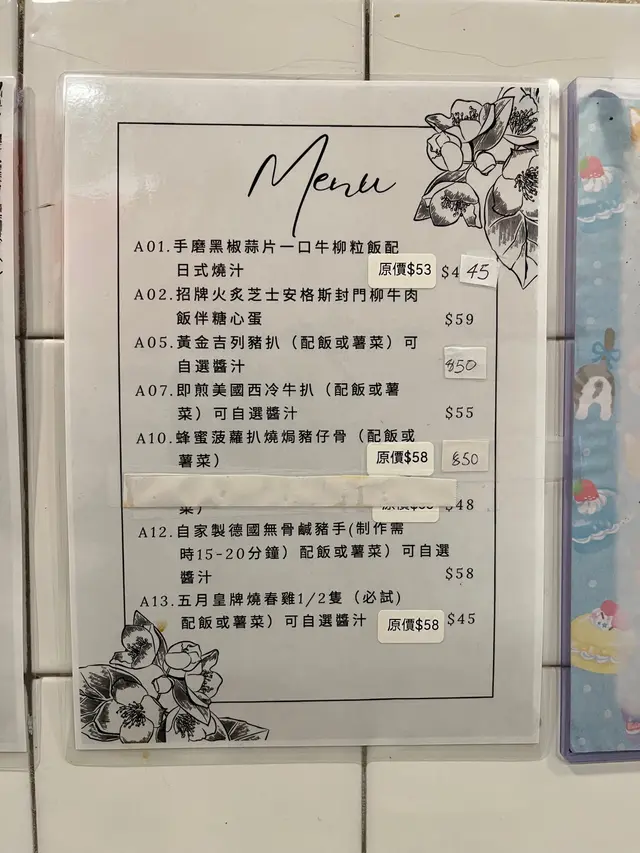 Menu
A01.手磨黑椒蒜片一口牛柳粒飯配
日式燒汁 原價$53 $4 45
A02.招牌火炙芝士安格斯封門柳牛肉
飯伴糖心蛋 $59
A05.黃金吉列豬扒（配飯或薯菜）可
自選醬汁 $50
A07.即煎美國西冷牛扒（配飯或薯
菜）可自選醬汁 $55
A10.蜂蜜菠蘿扒燒焗豬仔骨（配飯或
薯菜） 原價$58 $50
菜） 原價 $48
A12.自家製德國無骨鹹豬手(制作需
時15-20分鐘）配飯或薯菜）可自選
醬汁 $58
A13.五月皇牌燒春雞1/2隻（必試）
配飯或薯菜）可自選醬汁 原價$58 $45